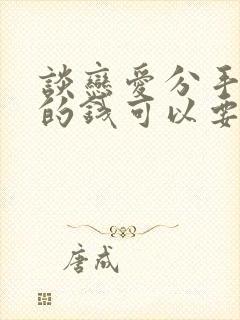 談戀愛分手
的錢可以要
唐成